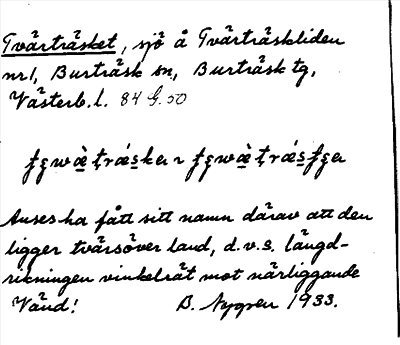 Tvärträsket, sjö å Tvärträskliden
nr 1, Burträsk sn, Burträsk tg,
Västerb. l. 84 G. 50
träsket
Anses ha fått sitt namn därav att den
ligger tvärsöver land, d.v.s. längd-
rikningen vinkelrät mot närliggande
Vänd! B. Nygren 1933.